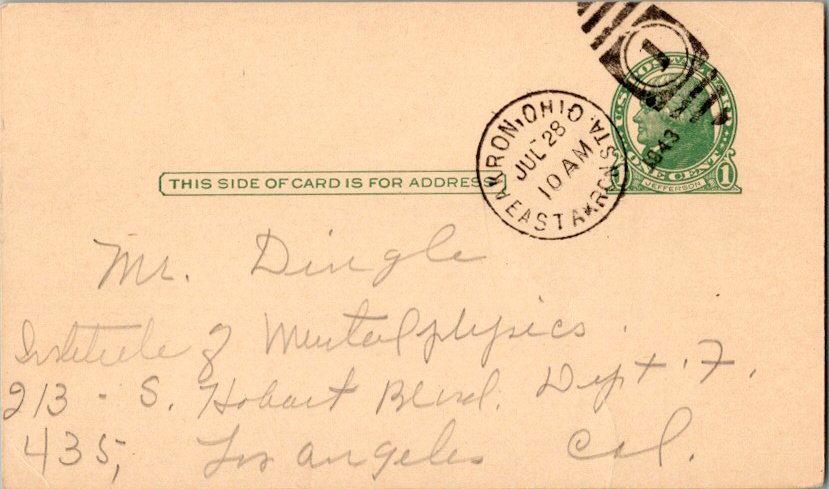 AKRON, OHIO.
EAST AKRON STA.
JUL 28
10 AM
1943
1
U.S. POSTAL CARD
ONE CENT
1 JEFFERSON 1
THIS SIDE OF CARD IS FOR ADDRESS
Mr. Dingle
Institute of Mentalphysics.
213 - S. Hobart Blvd. Dept. F.
435, Los Angeles Cal.